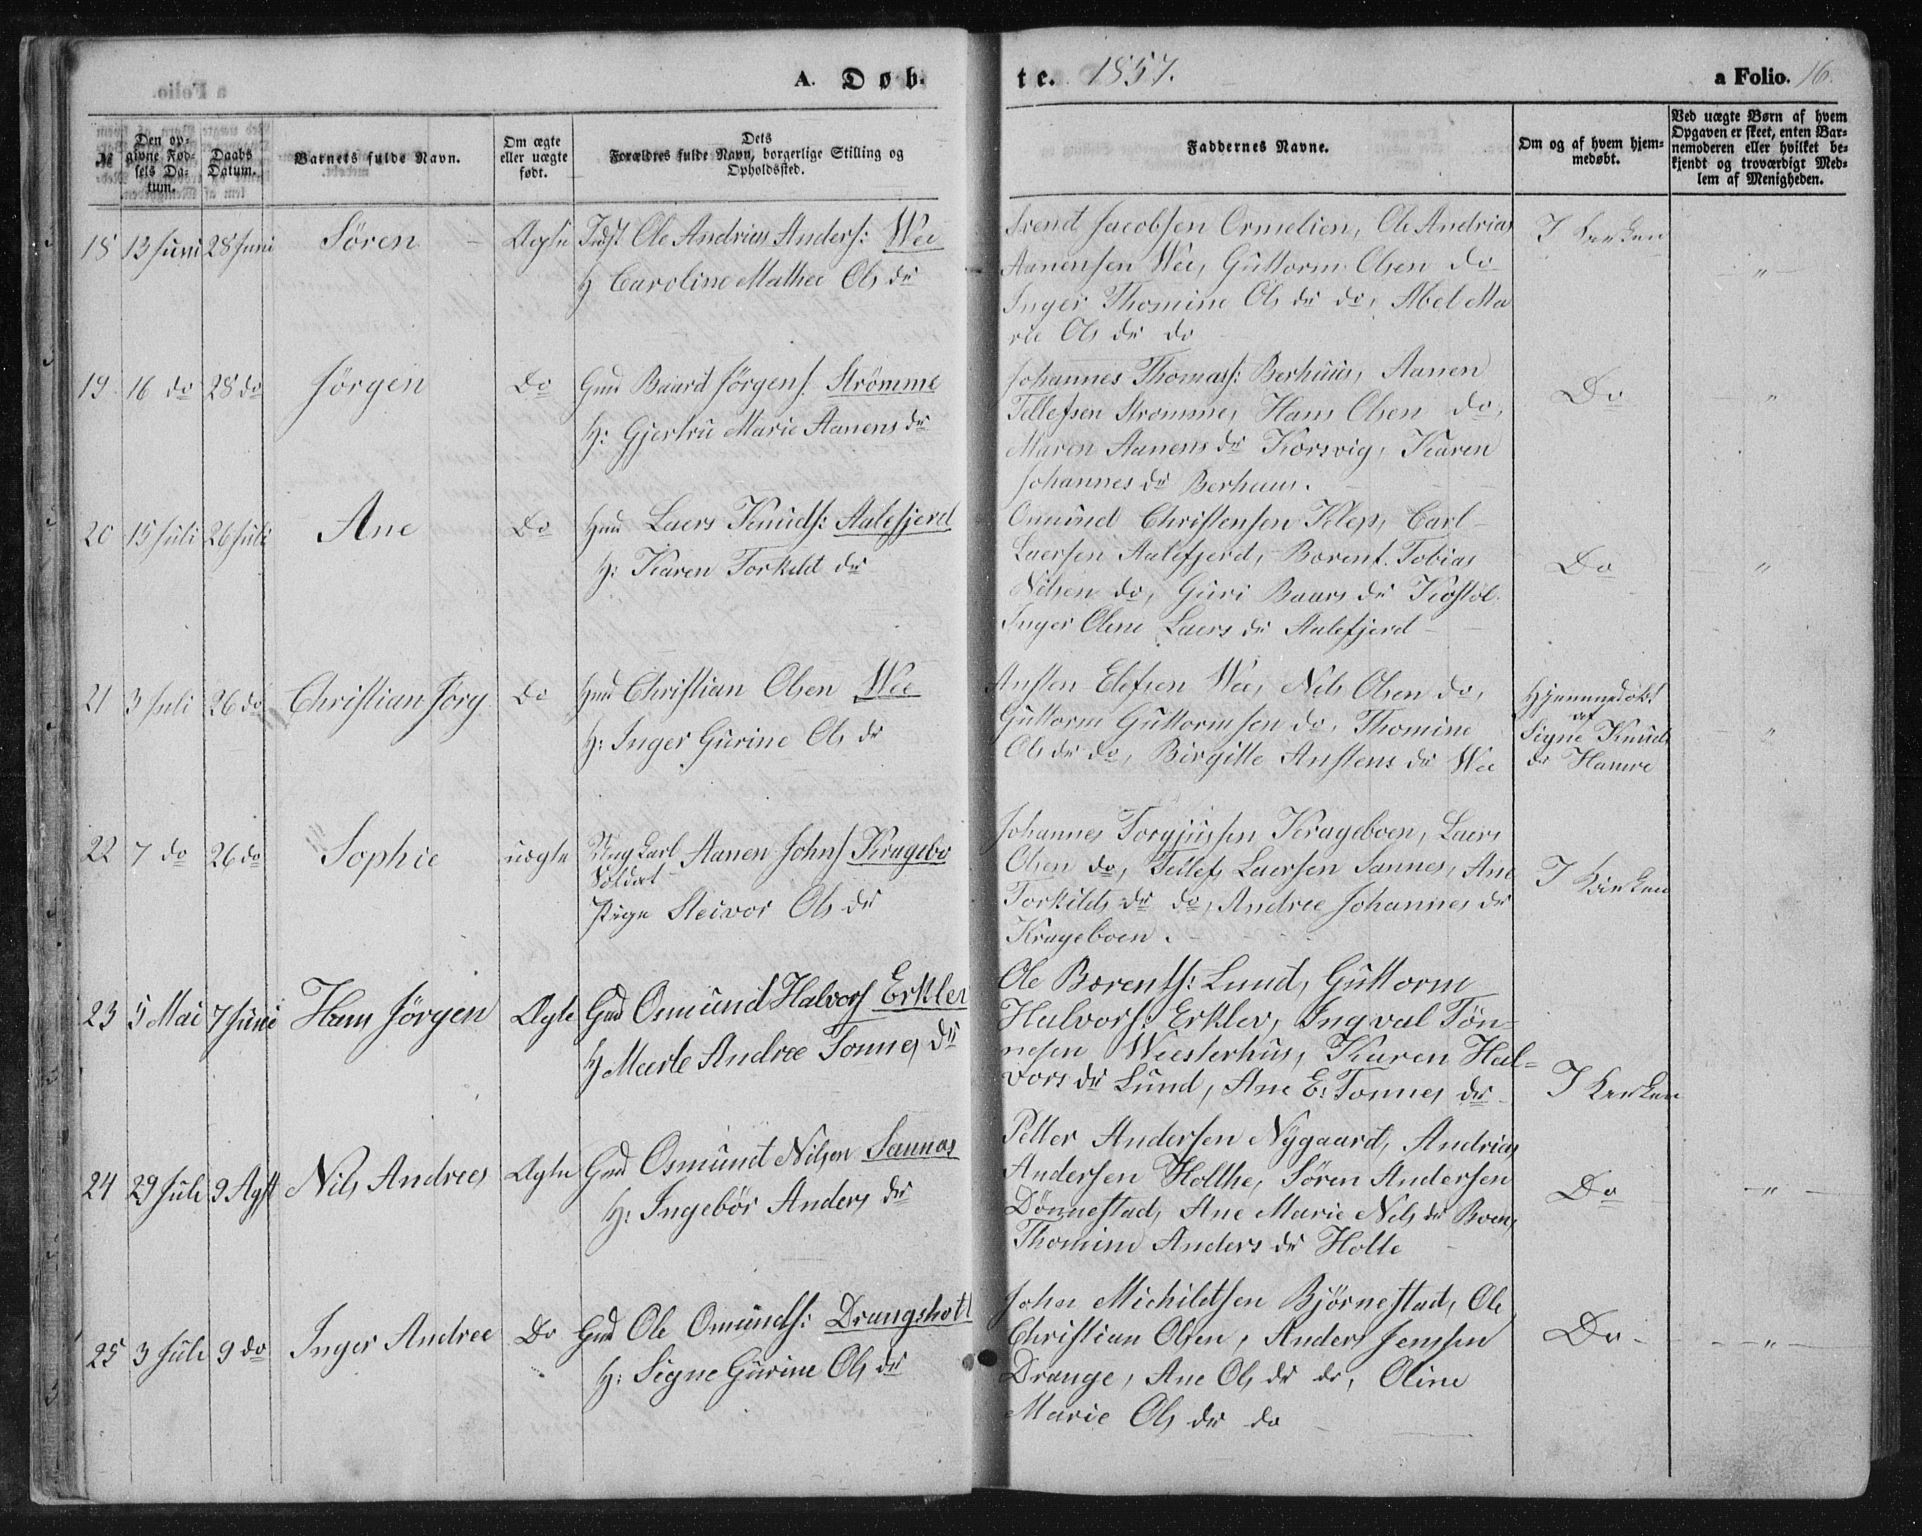 A. Døb-
te. 1857.
a Folio. 16.
№
Den opgivne Fødsels Datum.
Daabs Datum.
Barnets fulde Navn.
Om ægte eller uægte født.
Dets Forældres fulde Navn, borgerlige Stilling og Opholdssted.
Faddernes Navne.
Om og af hvem hjemmedøbt.
Ved uægte Børn af hvem Opgaven er skeet, enten Barnemoderen eller hvilket bekjendt og troværdigt Medlem af Menigheden.
18 13 Juni 28 Juni Søren Ægte Ole Andrias Anders: Wee
H Caroline Mathee Ols dr
Svend Jacobsen Ormelien, Ole Andrias
Aanensen Wee, Guttorm Olsen do
Inger Thomine Ols dr do, Abel Ma
rie Ols dr do
I Kirken "
19. 16 do 28 do Jørgen Do Gmd Baard Jørgens. Strömme
H: Gjertru Marie Aanens dr
Johannes Thomass: Berhuus, Aanen
Tellefsen Strømme, Hans Olsen do,
Maren Aanens dr Korsvig, Karen
Johannes dr Berhuus.
Do "
20 15 Juli 26 Juli Ane Do Hmd Laers Knuds: Aalefjerd
H: Karen Torkild dr
Omund Christensen Klep, Carl
Laersen Aalefjerd, Borent Tobias
Nilsen do, Guri Baars dr Kostöl
Inger Oline Laers dr Aalefjerd
Do "
21 3 Juli 26 do Christian Jörg Do Hmd Christian Olsen Wee
H: Inger Gurine Ols dr
Ansten Elefsen Wee, Nils Olsen do,
Guttorm Guttormsen do, Thomine
Ols dr do, Birgitte Anstens dr Wee
Hjemmedöbt
af
Signe Knuds
dr Hamre
"
22 7 do 26 do Sophie uægte Ung karl Aanen Johns Kragebo
Soldat
Pige Steivor Ols dr
Johannes Torgjussen Krageboen, Laers
Olsen do, Tellef Laersen Sannes, Ane
Torkilds dr do, Andree Johannes dr
Krageboen.
I Kirken
23 5 Mai 7 Juni Hans Jörgen Ægte Gmd Osmund Halvors Erklev
H Merte Andree Tonnes dr
Ole Borents: Lund, Guttorm
Halvors: Erklev, Ingval Tön-
nesen Weesterhus, Karen Hal-
vors dr Lund, Ane E: Tonnes dr
I Kirken
24 29 Juli 9 Agst Nils Andreas Ægte Gmd Osmund Nilsen Sannes
H: Ingebör Anders dr
Petter Andersen Nygaard, Andrias
Andersen Holthe, Sören Andersen
Dönnestad, Ane Marie Nils dr Boen,
Thomine Anders dr Holte
Do "
25 3 Juli 9 do Inger Andree Do Gmd Ole Omunds: Drangsholt
H: Signe Gurine Ols dr
John Michildtsen Björnestad, Ole
Christian Olsen, Anders Jenssen
Drange, Ane Ols dr do, Oline
Marie Ols dr do
Do "